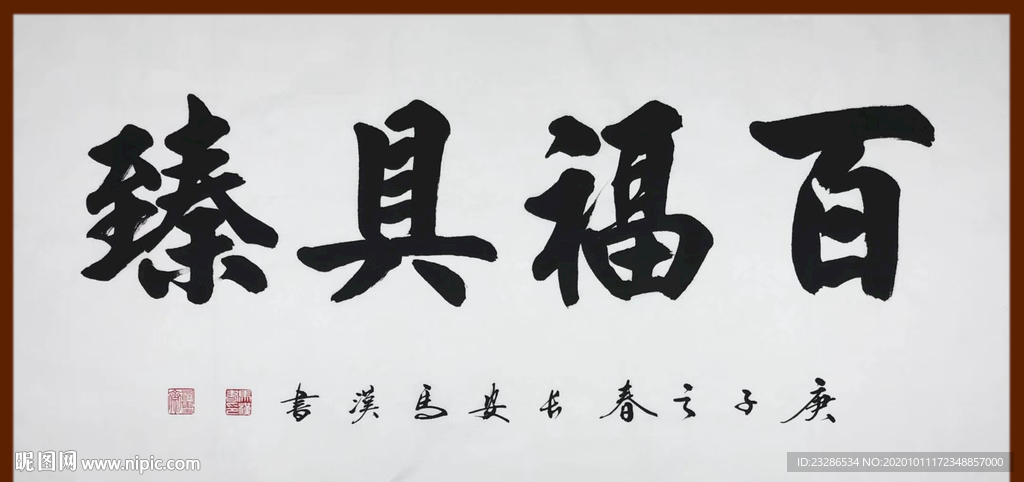 百福具臻
庚子之春长安马汉书
昵图网 www.nipic.com
ID:23286534 NO:20201011172348857000